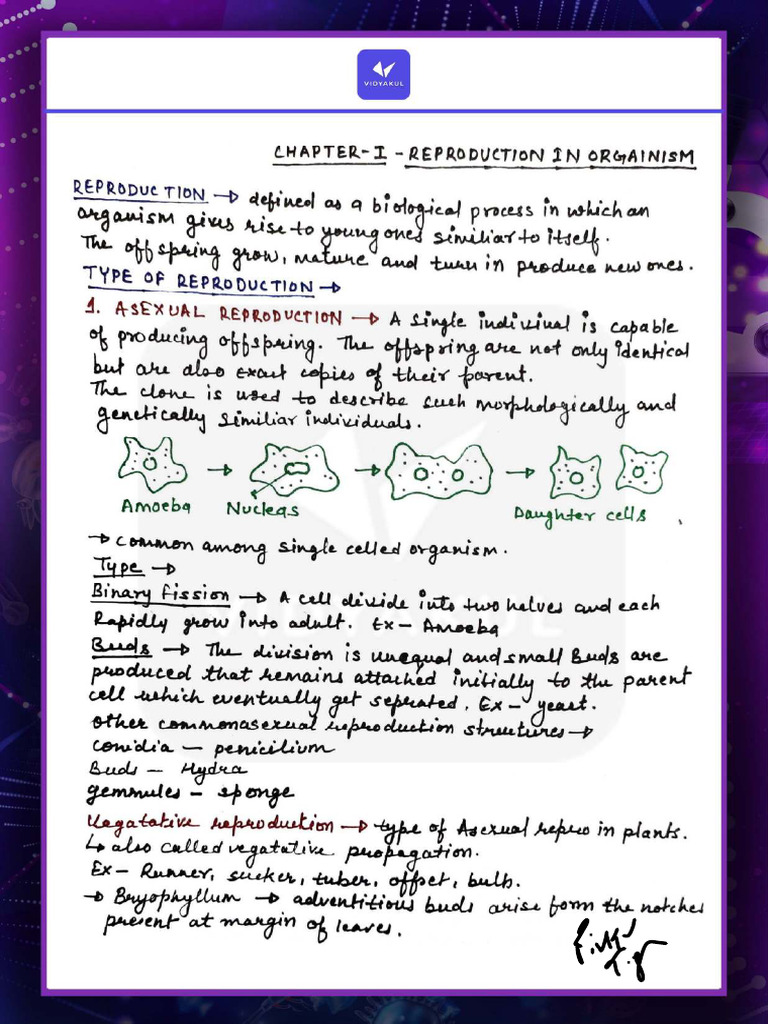 VIDYAKUL
CHAPTER-I - REPRODUCTION IN ORGAINISM
REPRODUCTION → defined as a biological process in which an
organism gives rise to young ones similiar to itself.
The offspring grow, mature and turn in produce new ones.
TYPE OF REPRODUCTION →
1. ASEXUAL REPRODUCTION → A single indiviual is capable
of producing offspring. The offspring are not only identical
but are also exact copies of their parent.
The clone is used to describe such morphologically and
genetically similiar individuals.
Amoeba Nucleas Daughter cells
→ common among single celled organism.
Type →
Binary fission → A cell divide into two halves and each
Rapidly grow into adult. Ex – Amoeba
Buds → The division is unequal and small Buds are
produced that remains attached initially to the parent
cell which eventually get seprated. Ex – yeast.
other common asexual reproduction structures →
conidia – penicilium
Buds – Hydra
gemmules – sponge
Vegatative reproduction → type of Asexual repro in plants.
↳ also called vegatative propagation.
Ex – Runner, sucker, tuber, offset, bulb.
→ Bryophyllum → adventitious buds arise form the notches
present at margin of leaves.